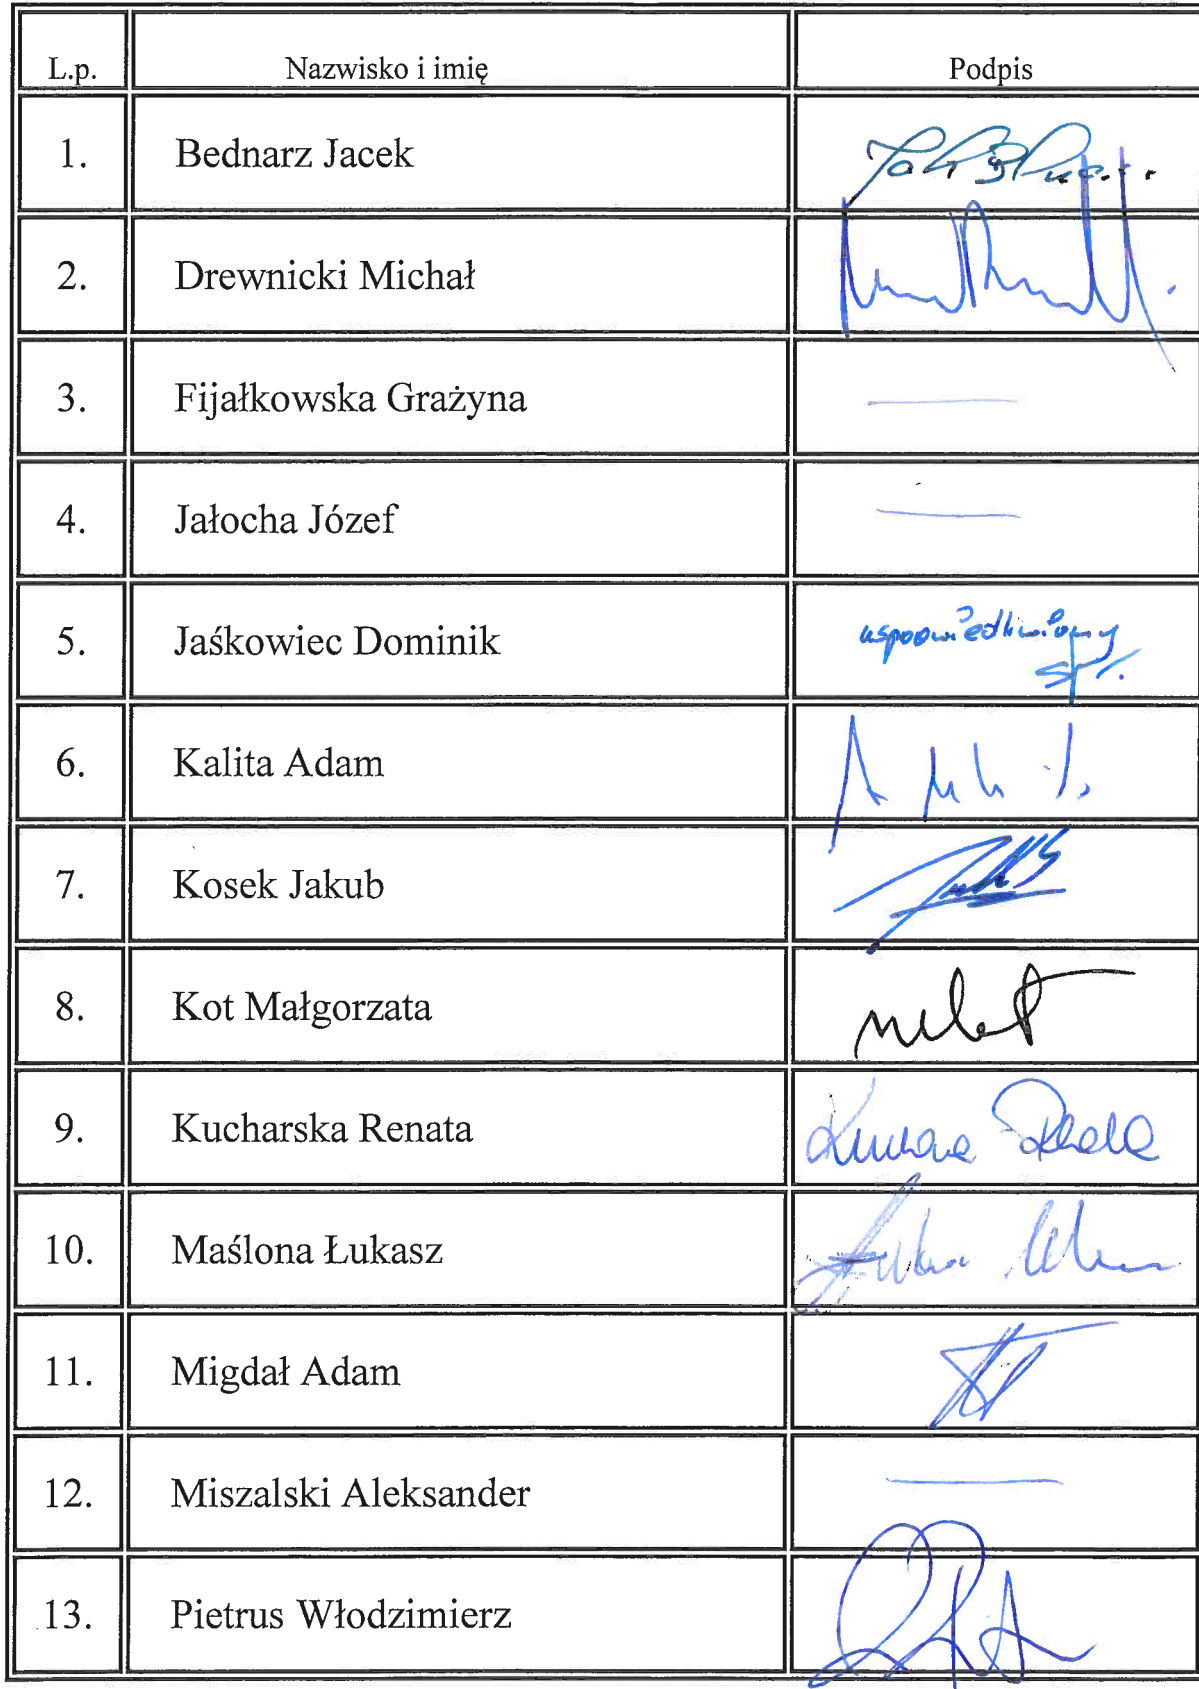 L.p. Nazwisko i imię Podpis
1. Bednarz Jacek
2. Drewnicki Michał
3. Fijałkowska Grażyna
4. Jałocha Józef
5. Jaśkowiec Dominik usprawiedliwiony
6. Kalita Adam
7. Kosek Jakub
8. Kot Małgorzata
9. Kucharska Renata
10. Maślona Łukasz
11. Migdał Adam
12. Miszalski Aleksander
13. Pietrus Włodzimierz